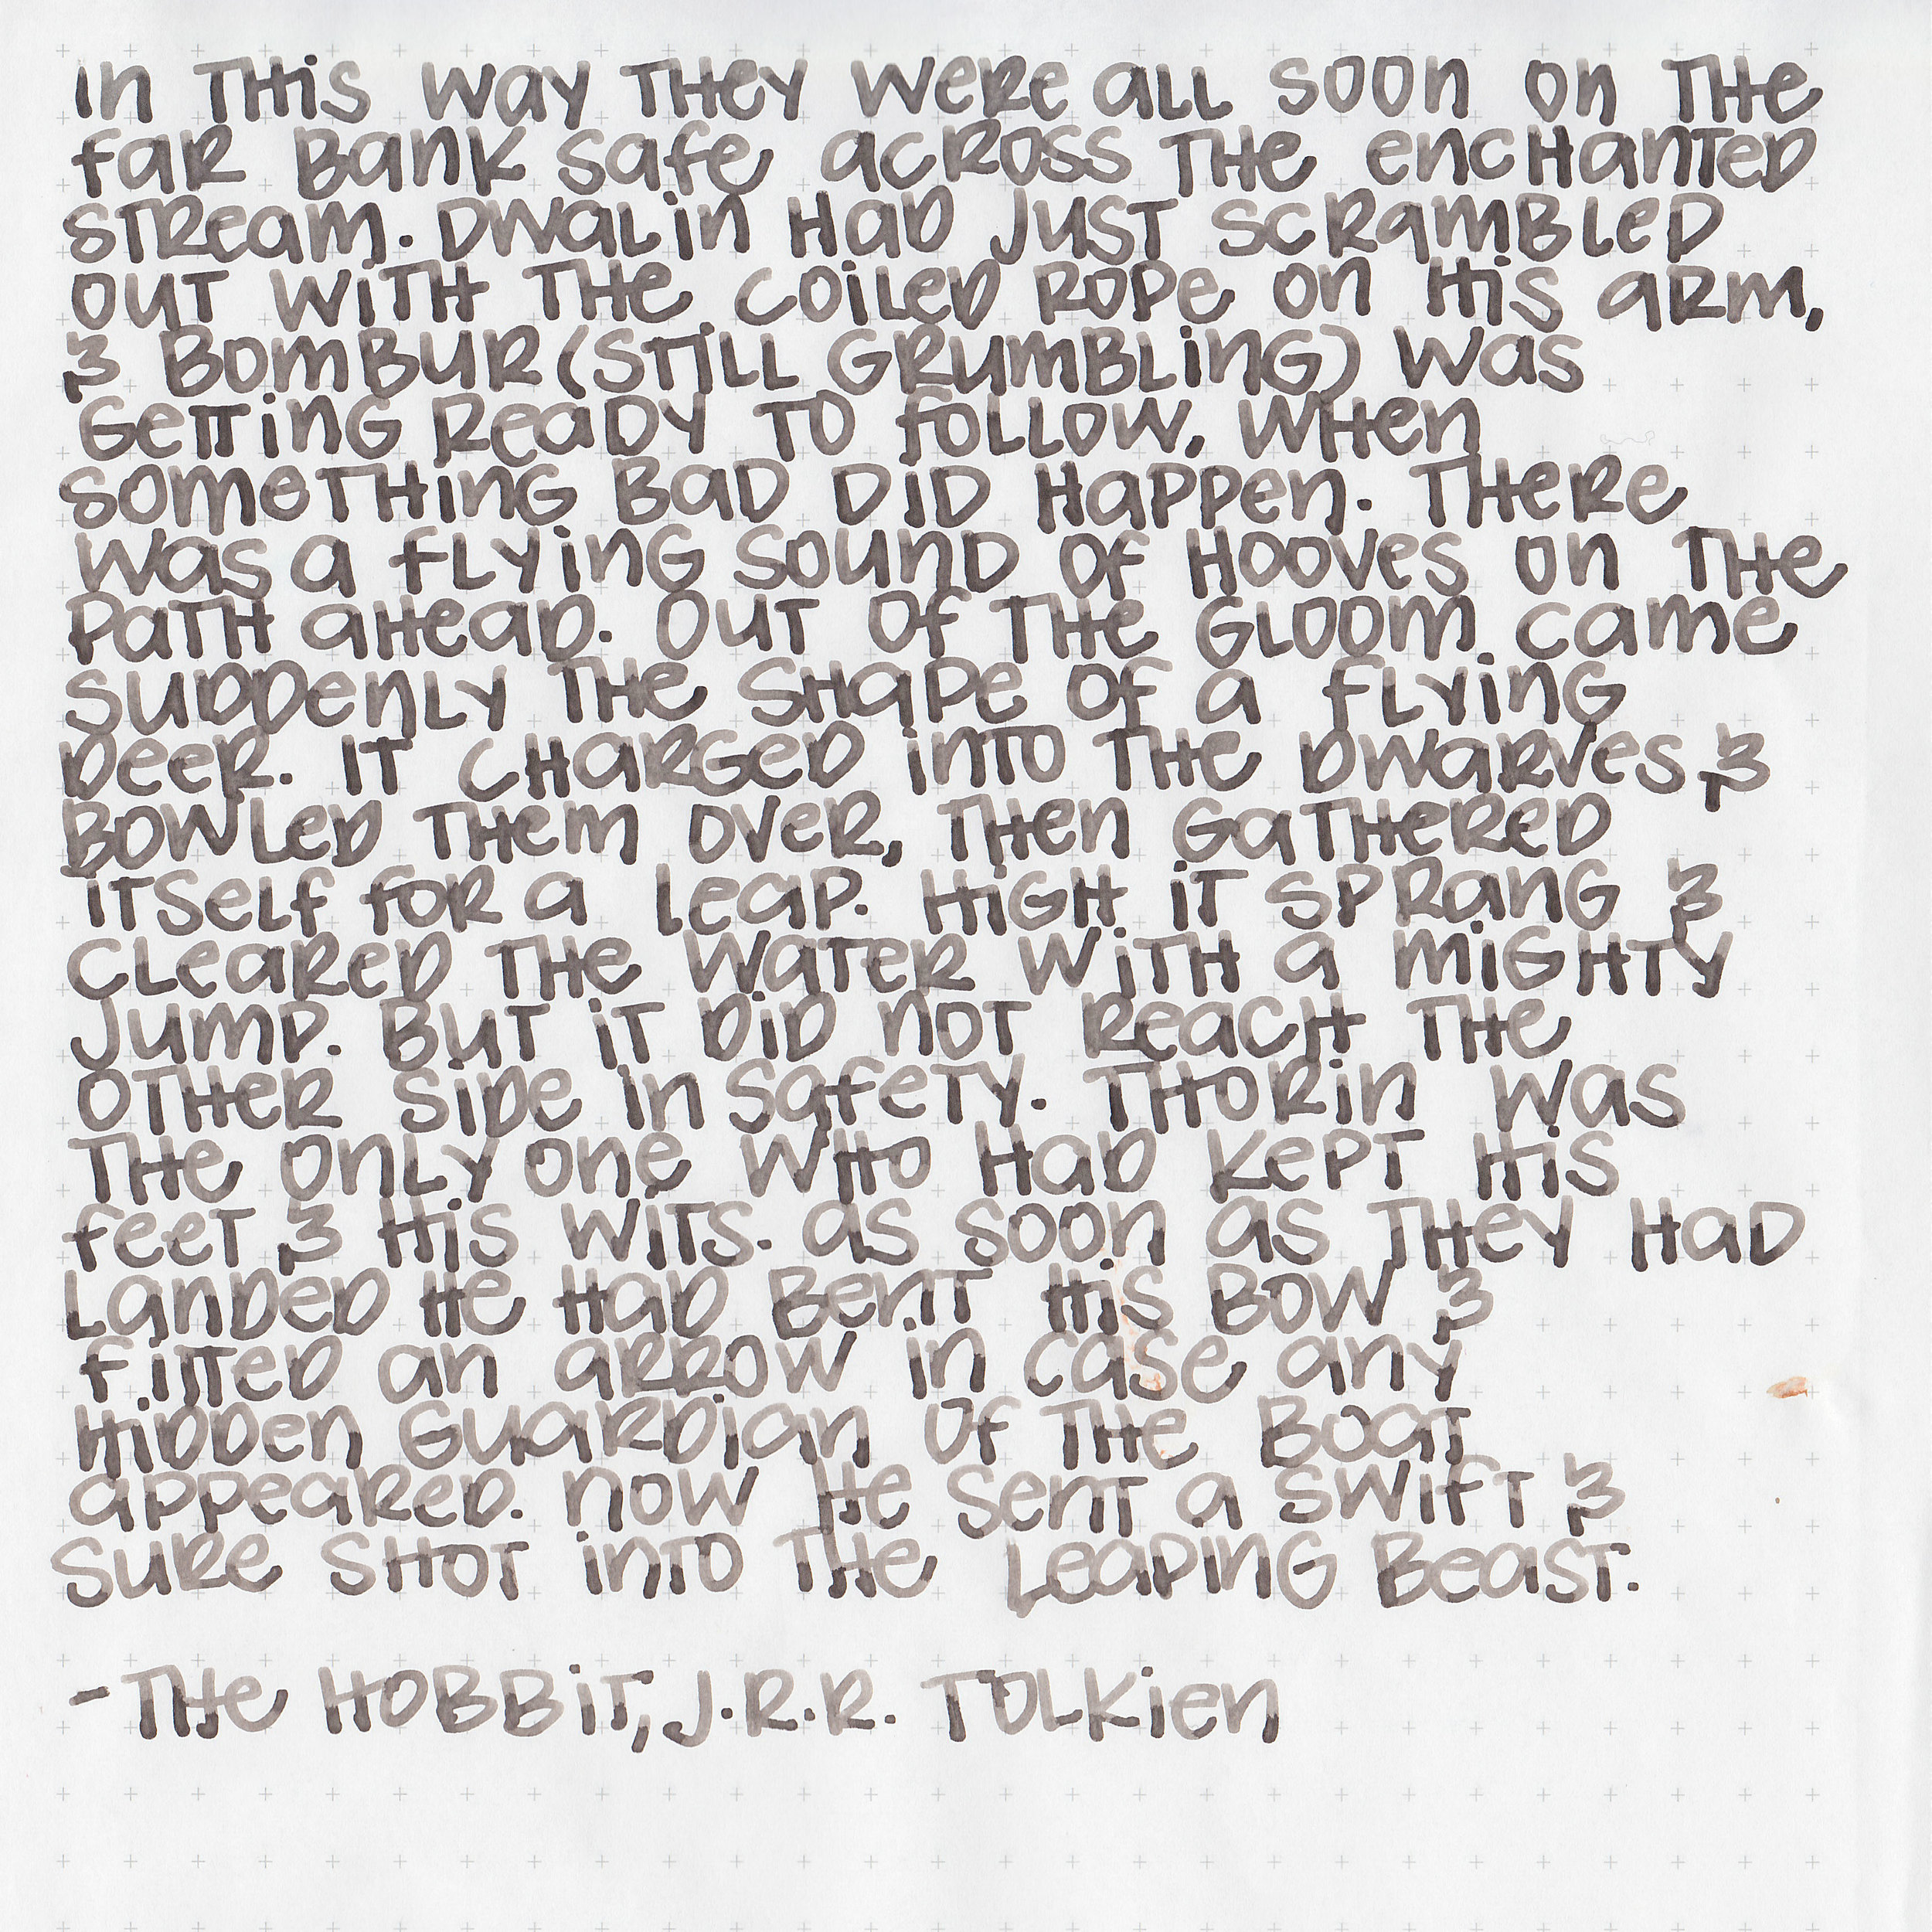 in THis way THey were all soon on THe
far Bank safe across THe encHanTeD
sTream. Dwalin HaD JusT scrambleD
ouT wiTH THe coileD rope on His arm,
& BomBur (sTill GrumBling) was
GeTTing ReaDy To follow, wHen
someTHing BaD DiD Happen. THere
was a flying sounD of Hooves on THe
paTH aHeaD. OuT of THe Gloom came
suDDenly THe sHape of a flying
Deer. iT cHarGeD inTo THe Dwarves &
BowleD THem over, THen GaTHereD
iTself for a leap. HiGH iT spranG &
cleareD THe waTer wiTH a miGHTy
Jump. BuT iT DiD noT reacH THe
oTHer siDe in safeTy. THorin was
THe only one wHo HaD kepT His
feeT & His wiTs. as soon as THey HaD
lanDeD He HaD BenT His Bow &
fiTTeD an arrow in case any
HiDDen GuarDian of THe BoaT
appeareD. now He senT a swifT &
sure sHoT inTo THe leaping BeasT.
- THe HoBBiT, J.R.R. Tolkien